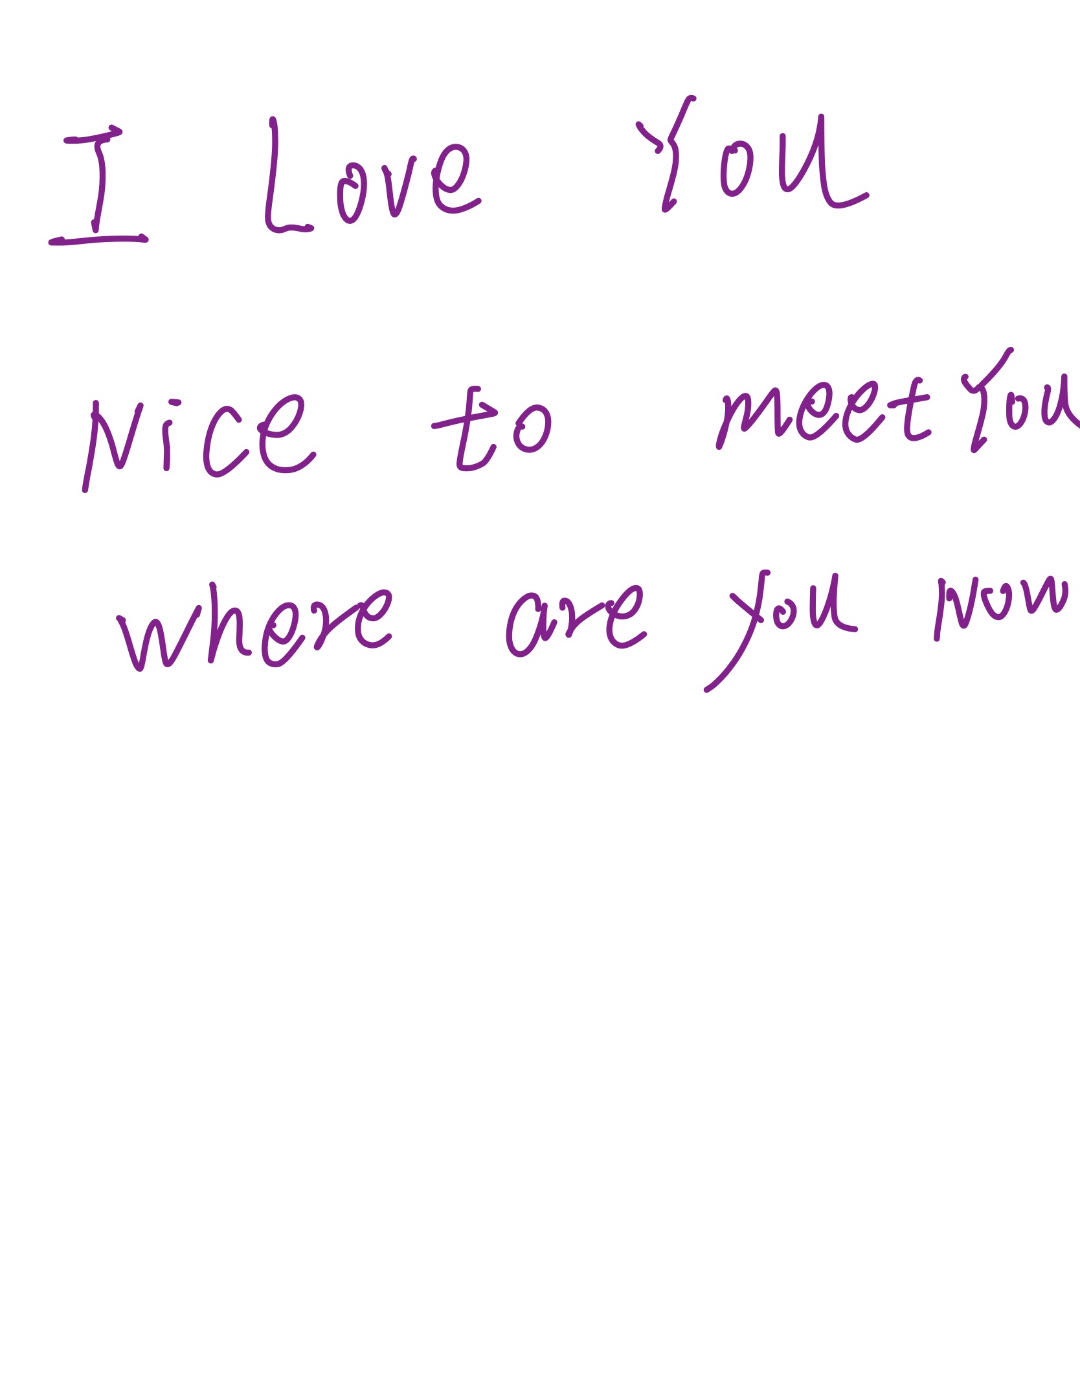 I Love You
Nice to meet You
where are you now